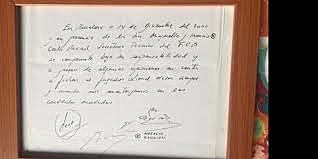 En Barcelona a 14 de Diciembre del 2000
y en presencia de los Srs Minguella y Horacio
Carles Rexach Secretario Técnico del F.C.B
se compromete bajo su responsabilidad y
a pesar de algunas opiniones en contra
a fichar al jugador Lionel Messi siempre
y cuando nos mantengamos en las
cantidades acordadas.
HORACIO
GAGGIOLI